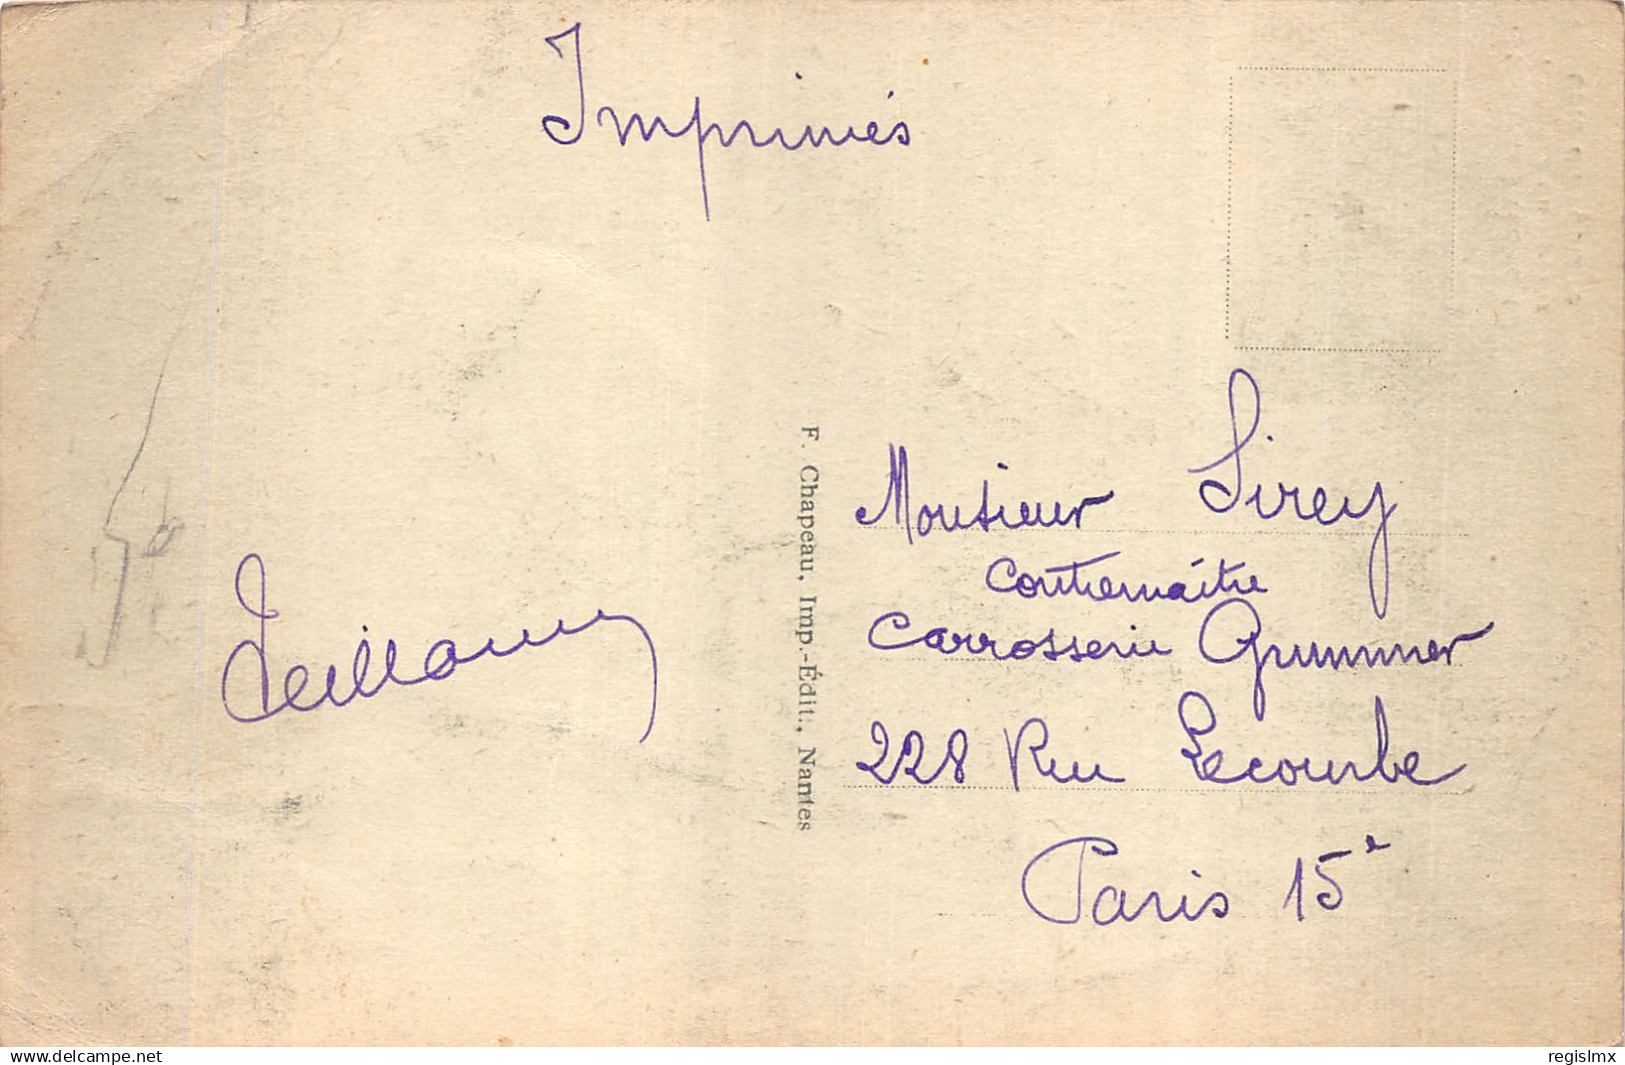 Imprimés
F. Chapeau, Imp.-Édit., Nantes
Monsieur Sirey
Contremaître
Carrosserie Grummer
228 Rue Lecourbe
Paris 15e
delcampe.net
regislmx